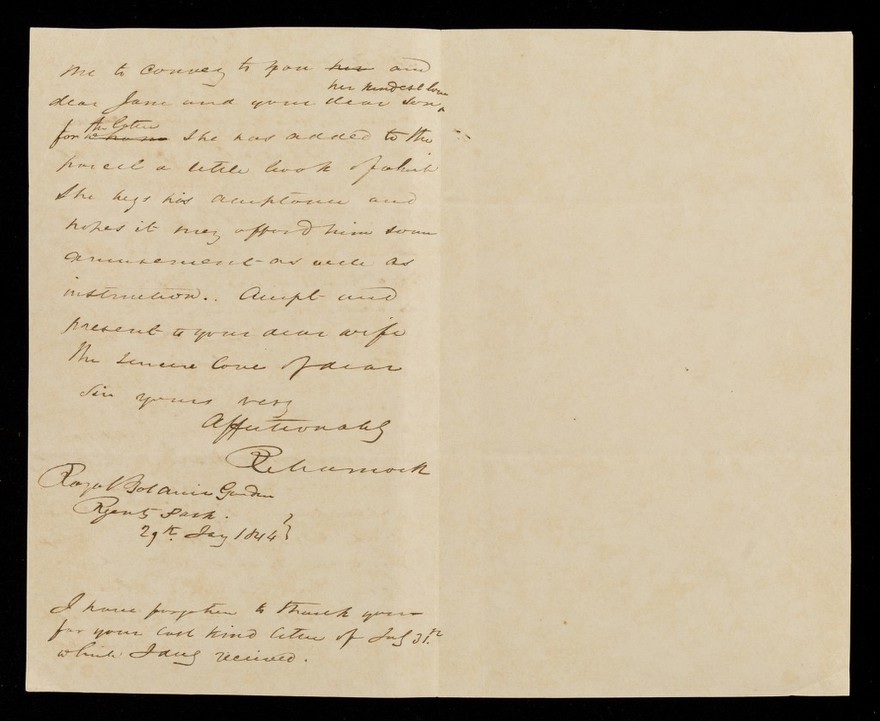 me to convey to you her and
her kindest love
dear Jane and your dear son,
the latter
for whom She has added to the
parcel a little book of which
She begs his acceptance and
hopes it may afford him some
amusement as well as
instruction.. Accept and
present to your dear wife
the sincere love of dear
Sir yours very
Affectionately
R Marnock
Royal Botanic Garden
Regents Park.
29th Jay 1844
I have forgotten to thank you
for your last kind letter of July 31st
which I duly received.